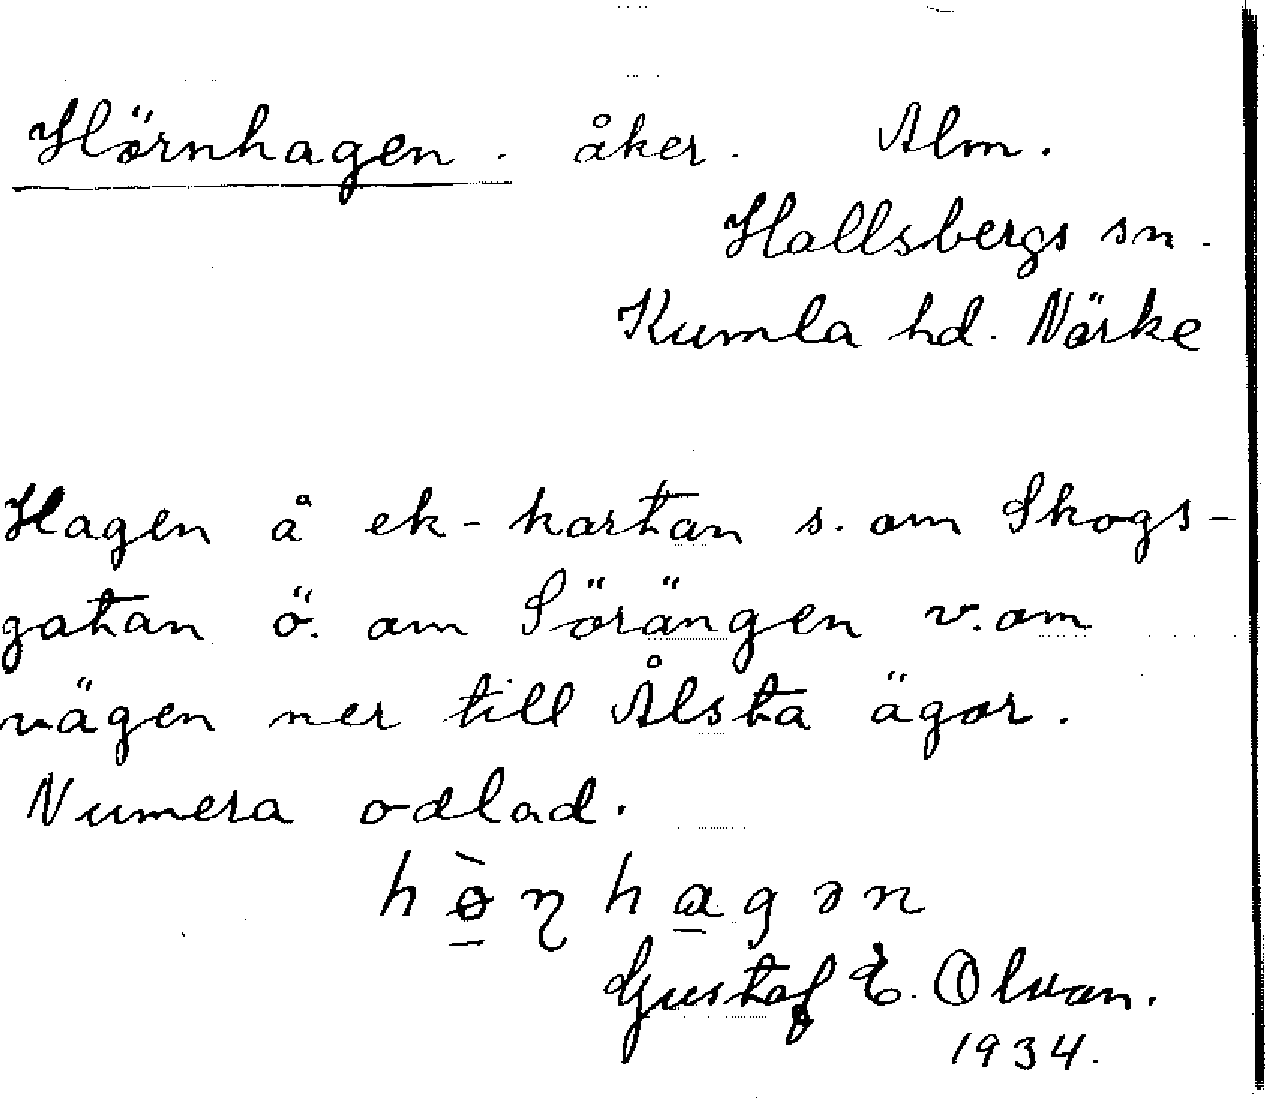 Hörnhagen. åker. Alm.
Hallsbergs sn.
Kumla hd. Närke
Hagen å ek-kartan s. om Skogs-
gatan ö. om Sörängen v. om
vägen ner till Ålsta ägor.
Numera odlad.
hø̱̀ɳha̱gən
Gustaf E. Olvan.
1934.